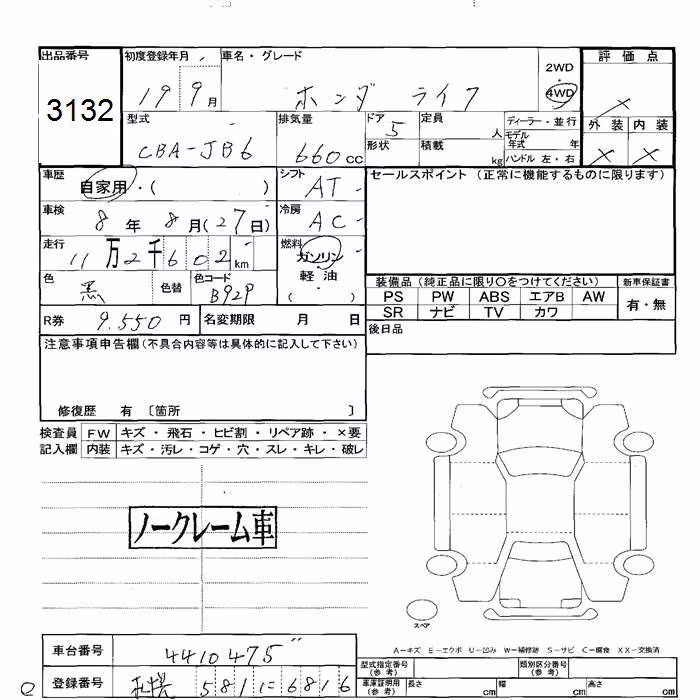 出品番号
3132
初度登録年月
19 9月
車名・グレード
ホンダ ライフ
2WD
・
4WD
評価点
×
外装 内装
× ×
型式
CBA-JB6
排気量
660cc
ドア
5
形状
定員
人
積載
kg
ディーラー・並行
モデル年式 年
ハンドル 左・右
車歴
自家用・( )
シフト
AT
車検
8年 8月(27日)
冷房
AC
走行
11万2千602km
燃料
ガソリン
軽油
( )
色
黒
色替
色コード
B92P
R券
9,550円
名変期限 月 日
セールスポイント(正常に機能するものに限ります)
装備品(純正品に限り○をつけてください)
新車保証書
PS PW ABS エアB AW
SR ナビ TV カワ
有・無
後日品
注意事項申告欄(不具合内容等は具体的に記入して下さい)
修復歴 有 〔箇所 〕
検査員記入欄
FW キズ・飛石・ヒビ割・リペア跡・×要
内装 キズ・汚レ・コゲ・穴・スレ・キレ・破レ
ノークレーム車
スペア
A-キズ E-エクボ U-凹み W-補修跡 S-サビ C-腐食 XX-交換済
車台番号
4410475
登録番号
札幌 581 に 6816
型式指定番号(参考)
類別区分番号(参考)
車庫証明用(参考)
長さ cm 幅 cm 高さ cm